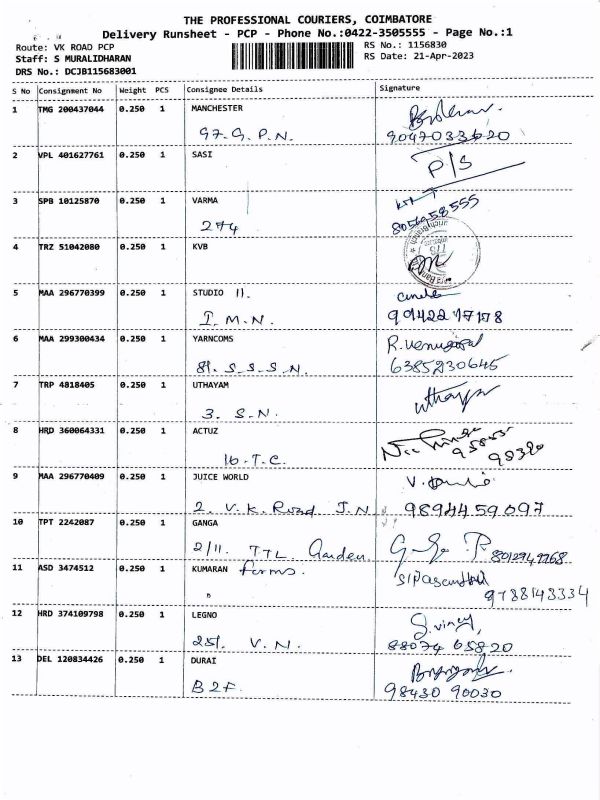 THE PROFESSIONAL COURIERS, COIMBATORE
Delivery Runsheet - PCP - Phone No.:0422-3505555 - Page No.:1
Route: VK ROAD PCP
RS No.: 1156830
Staff: S MURALIDHARAN
RS Date: 21-Apr-2023
DRS No.: DCJB115683001
S No Consignment No Weight PCS Consignee Details Signature
1 TMG 200437044 0.250 1 MANCHESTER
97. G. P. N. 9047033620
2 VPL 401627761 0.250 1 SASI
P/S
3 SPB 10125870 0.250 1 VARMA
274 8056958555
4 TRZ 51042080 0.250 1 KVB
5 MAA 296770399 0.250 1 STUDIO 11.
I. M. N. 9942217178
6 MAA 299300434 0.250 1 YARNCOMS R. Venugopal
81. S. S. S. N. 6385230645
7 TRP 4818405 0.250 1 UTHAYAM
3. S. N. uthaya
8 HRD 360064331 0.250 1 ACTUZ
16. T. C. 98320
9 MAA 296770409 0.250 1 JUICE WORLD
2. V. K. Road J. N 9894459097
10 TPT 2242087 0.250 1 GANGA
2/11. TTL Garden 8012949768
11 ASD 3474512 0.250 1 KUMARAN farms.
9788143334
12 HRD 374109798 0.250 1 LEGNO
251. V. N. 88074 65820
13 DEL 120834426 0.250 1 DURAI
B2F. 98430 90030